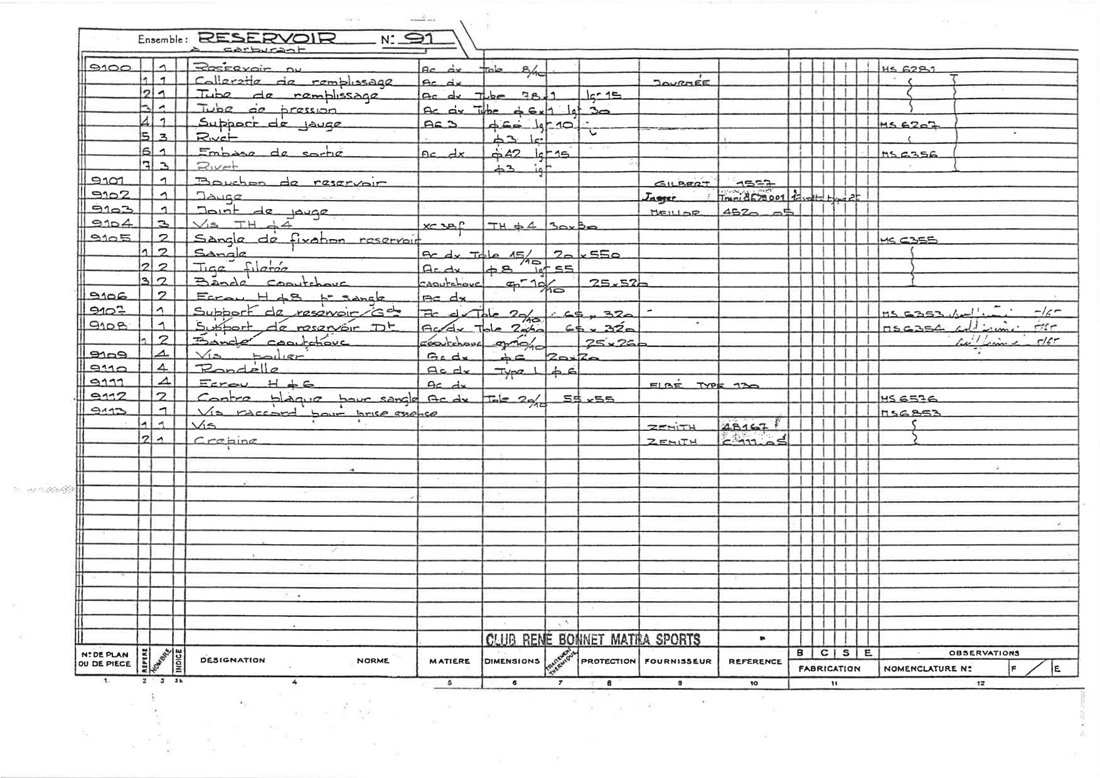 Ensemble: RESERVOIR N° 91
à carburant
9100 1 Reservoir nu Ac dx Tole 8/10 MS 6281
1 1 Collerette de remplissage Ac dx JOURNÉE
2 1 Tube de remplissage Ac dx Tube 78x1 lgr 15
3 1 Tube de pression Ac dx Tube ϕ6x1 lgr 30
4 1 Support de jauge AG3 ϕ60 lgr 10 MS 6207
5 3 Rivet ϕ3 lgr
6 1 Embase de sortie Ac dx ϕ42 lgr 15 MS 6356
7 3 Rivet ϕ3 lgr
9101 1 Bouchon de reservoir GILBERT 1557
9102 1 Jauge Jaeger
9103 1 Joint de jauge MEILLOR 4520.05
9104 3 Vis TH ϕ4 XC 38f TH ϕ4 30x30
9105 2 Sangle de fixation reservoir MS 6355
1 2 Sangle Ac dx Tole 15/10 20x550
2 2 Tige filetée Ac dx ϕ8 lgr 55
3 2 Bande caoutchouc caoutchouc epr 10/10 25x520
9106 2 Ecrou H ϕ8 pr sangle Ac dx
9107 1 Support de reservoir Gch Ac dx Tole 20/10 65x320 MS 6353
9108 1 Support de reservoir Dt Ac dx Tole 20/10 65x320 MS 6354
1 2 Bande caoutchouc caoutchouc ep 10/10 25x260
9109 4 Vis poelier Ac dx ϕ6 20x20
9110 4 Rondelle Ac dx Type L ϕ6
9111 4 Ecrou H ϕ6 Ac dx FIBÉ TYPE 130
9112 2 Contre plaque pour sangle Ac dx Tole 20/10 55x55 MS 6576
9113 1 Vis raccord pour prise essence MS 6853
1 1 Vis ZENITH 48167
2 1 Crepine ZENITH C 111.05
CLUB RENÉ BONNET MATRA SPORTS
N° DE PLAN OU DE PIÈCE REPÈRE NOMBRE INDICE DÉSIGNATION NORME MATIÈRE DIMENSIONS TRAITEMENT THERMIQUE PROTECTION FOURNISSEUR RÉFÉRENCE B C S E FABRICATION OBSERVATIONS NOMENCLATURE N° F E
1. 2 3 3b 4 5 6 7 8 9 10 11 12